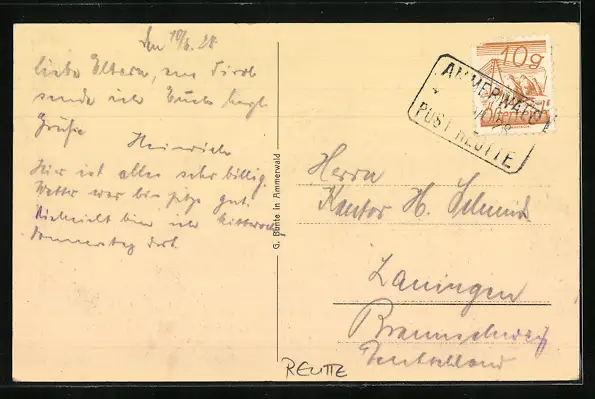 Den 10/6. 28
liebe Eltern, aus Tirol
sende ich Euch herzl.
Grüße
Heinrich
Hier ist alles sehr billig.
Wetter war bis jetzt gut.
Vielleicht bin ich Mittwoch,
Donnerstag dort.
G. Bunte in Ammerwald
10g
AMMERWALD
POST REUTTE
Herrn
Kantor H. Schmidt
Braunschweig
Deutschland
REUTTE